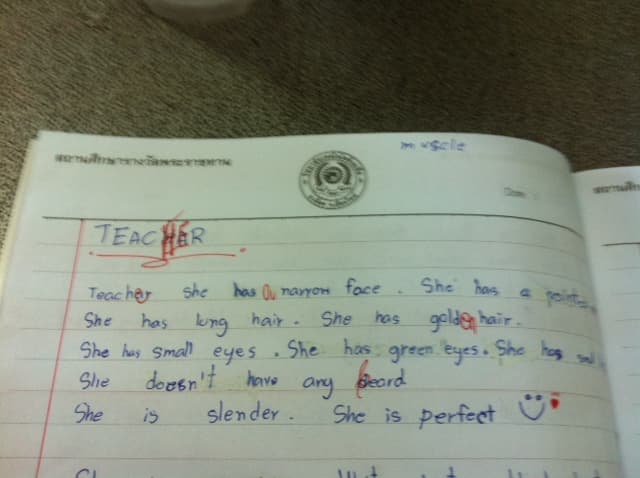 สถานศึกษารางวัลพระราชทาน
muscle
TEACHER
Teacher she has a narrow face. She has a pointed
She has long hair. She has golden hair.
She has small eyes. She has green eyes. She has
She doesn't have any beard
She is slender. She is perfect